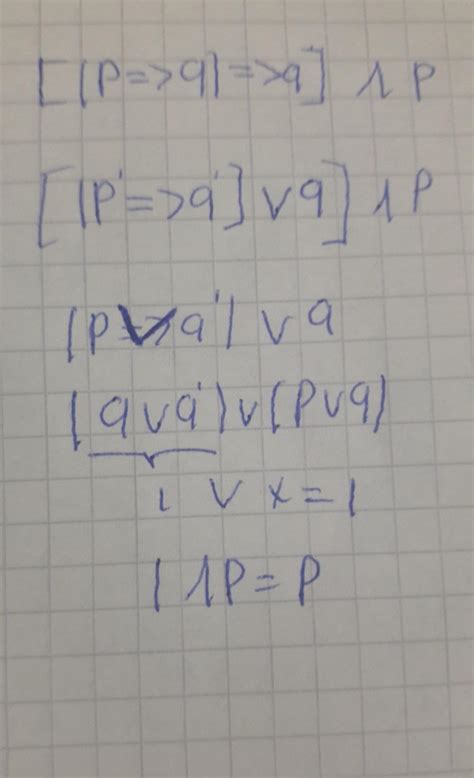 [(p=>q)=>q] ∧ p
[(p'=>q')∨q]∧p
(p∨q')∨q
(q∨q')∨(p∨q)
1 ∨ x=1
1∧p=p